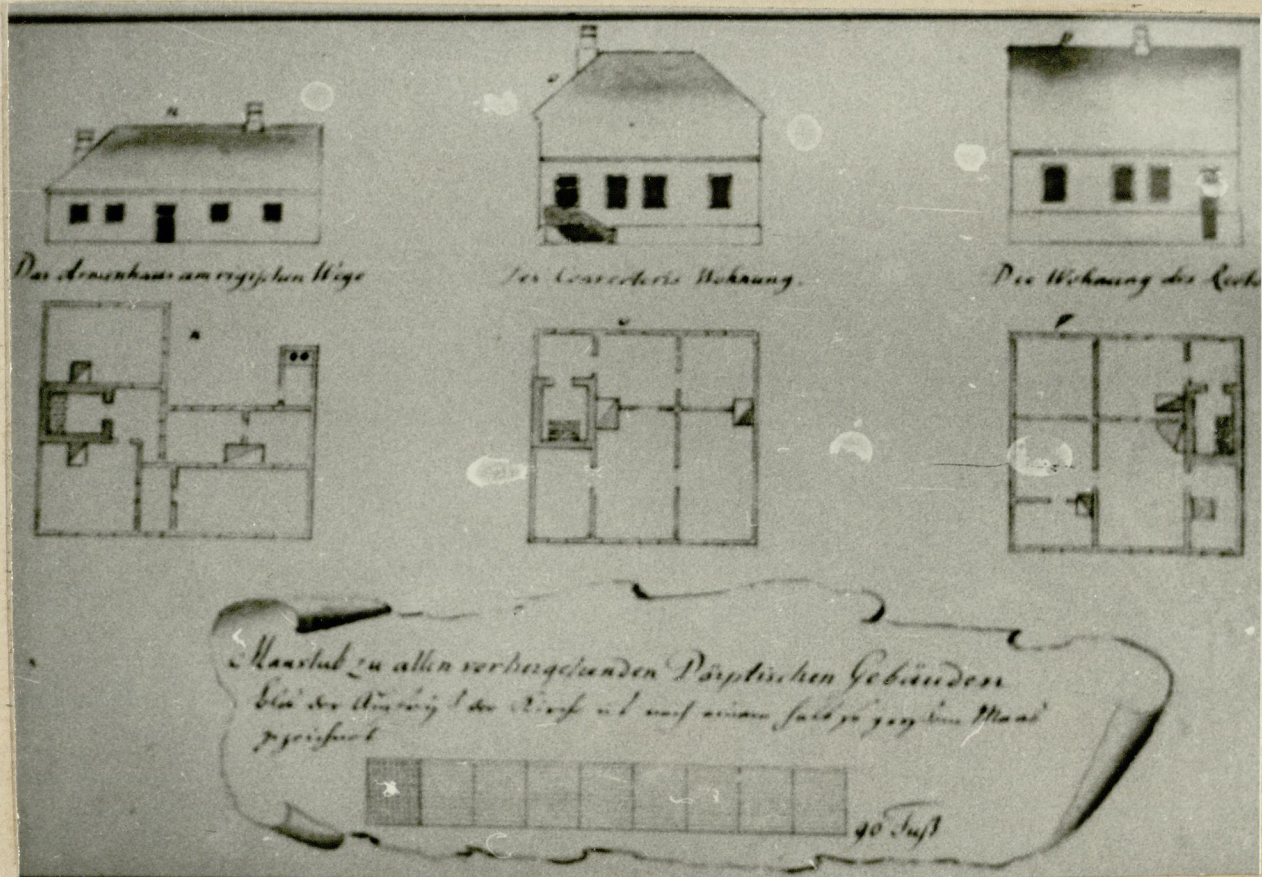 Das Armenhaus am rigischen Wege
Des Conrectoris Wohnung.
Die Wohnung des Recto
Maasstab zu allen vorhergehenden Dörptischen Gebäuden
blos der der Kirche ist nach einem halb so Maas
gezeichnet
90 Fuß